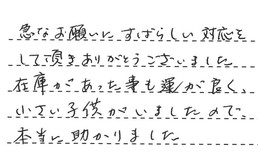 急なお願いにすばらしい対応を
して頂きありがとうございました
在庫があった事も運が良く、
小さい子供がいましたので、
本当に助かりました